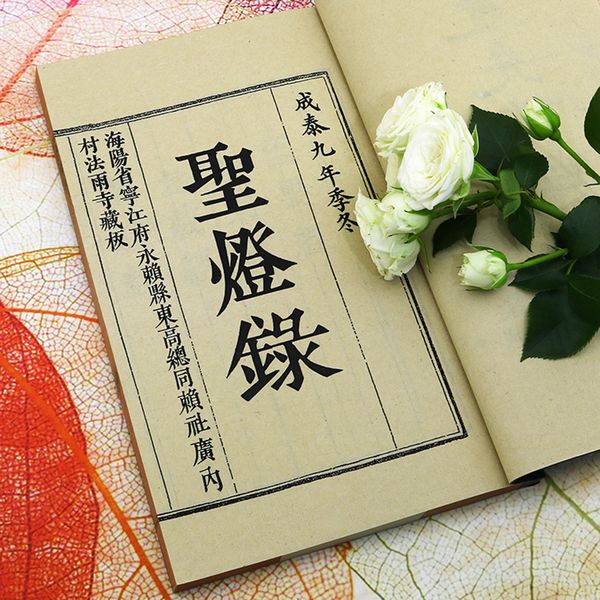 成泰九年季冬
聖燈錄
海陽省寧江府永賴縣東高總同賴社廣內
村法雨寺藏板